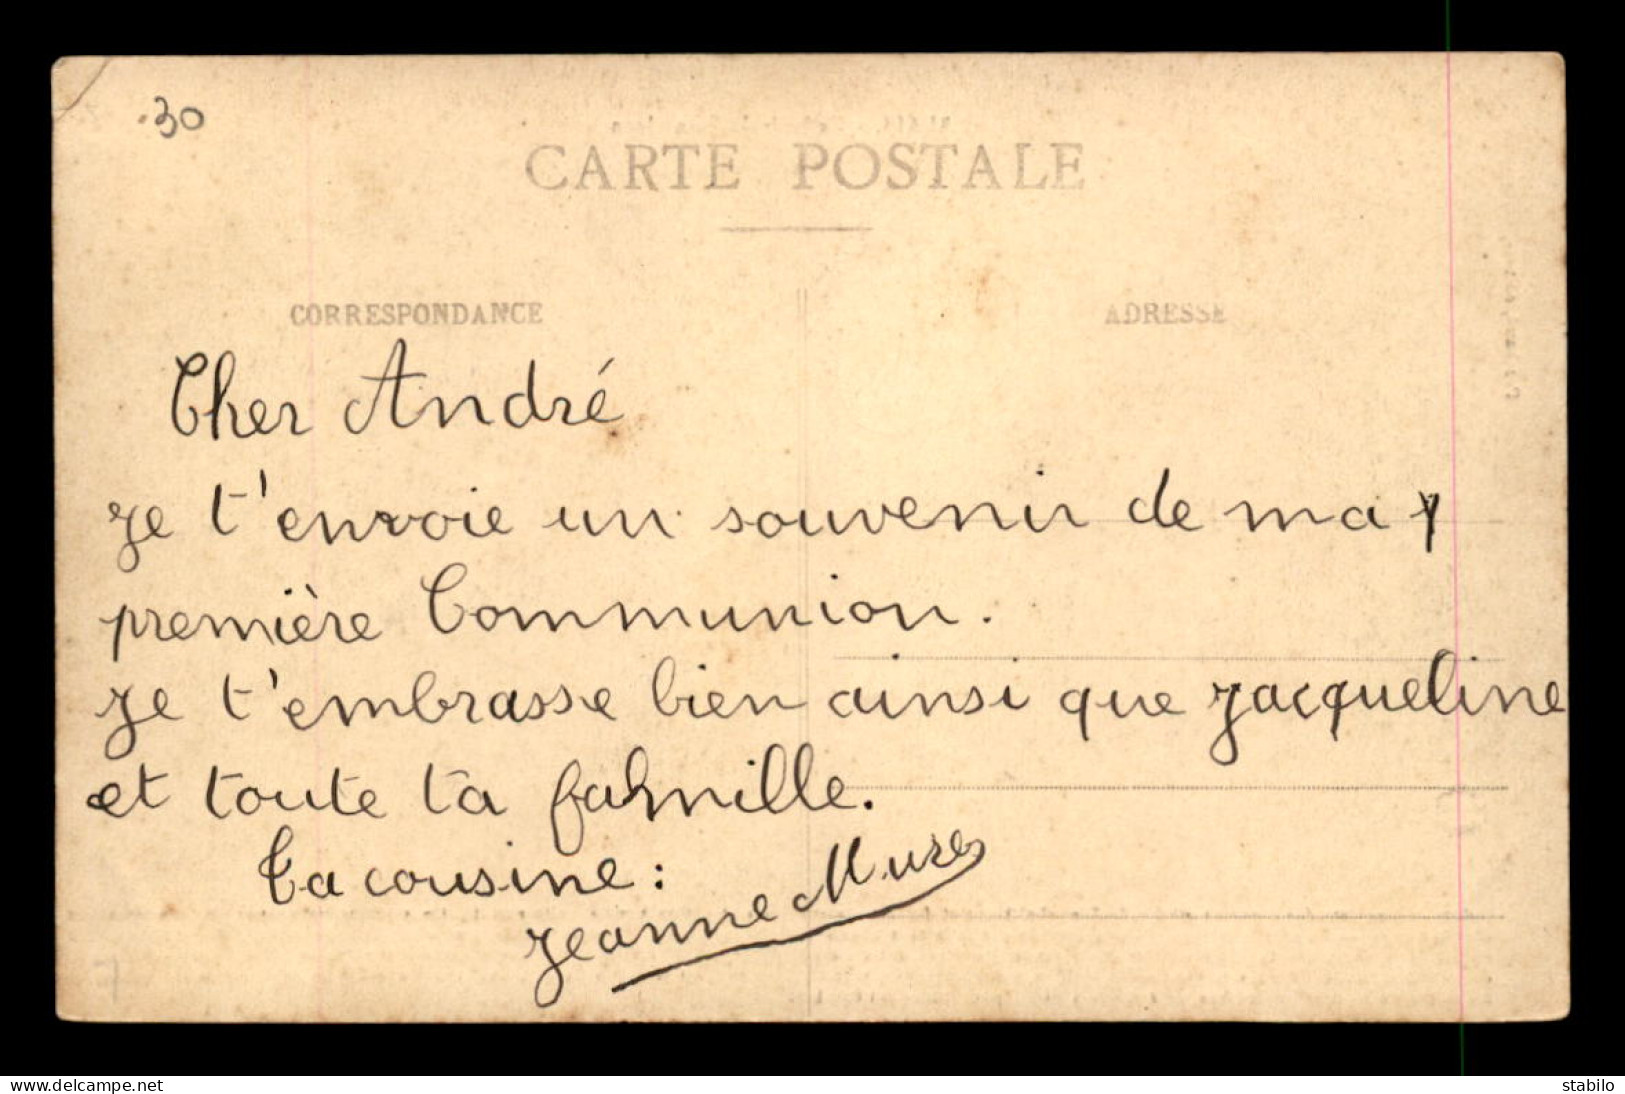 30
CARTE POSTALE
CORRESPONDANCE
ADRESSE
Cher André
je t'envoie un souvenir de ma
première Communion.
je t'embrasse bien ainsi que jacqueline
et toute ta famille.
Ta cousine :
jeanne Mure
www.delcampe.net
stabilo